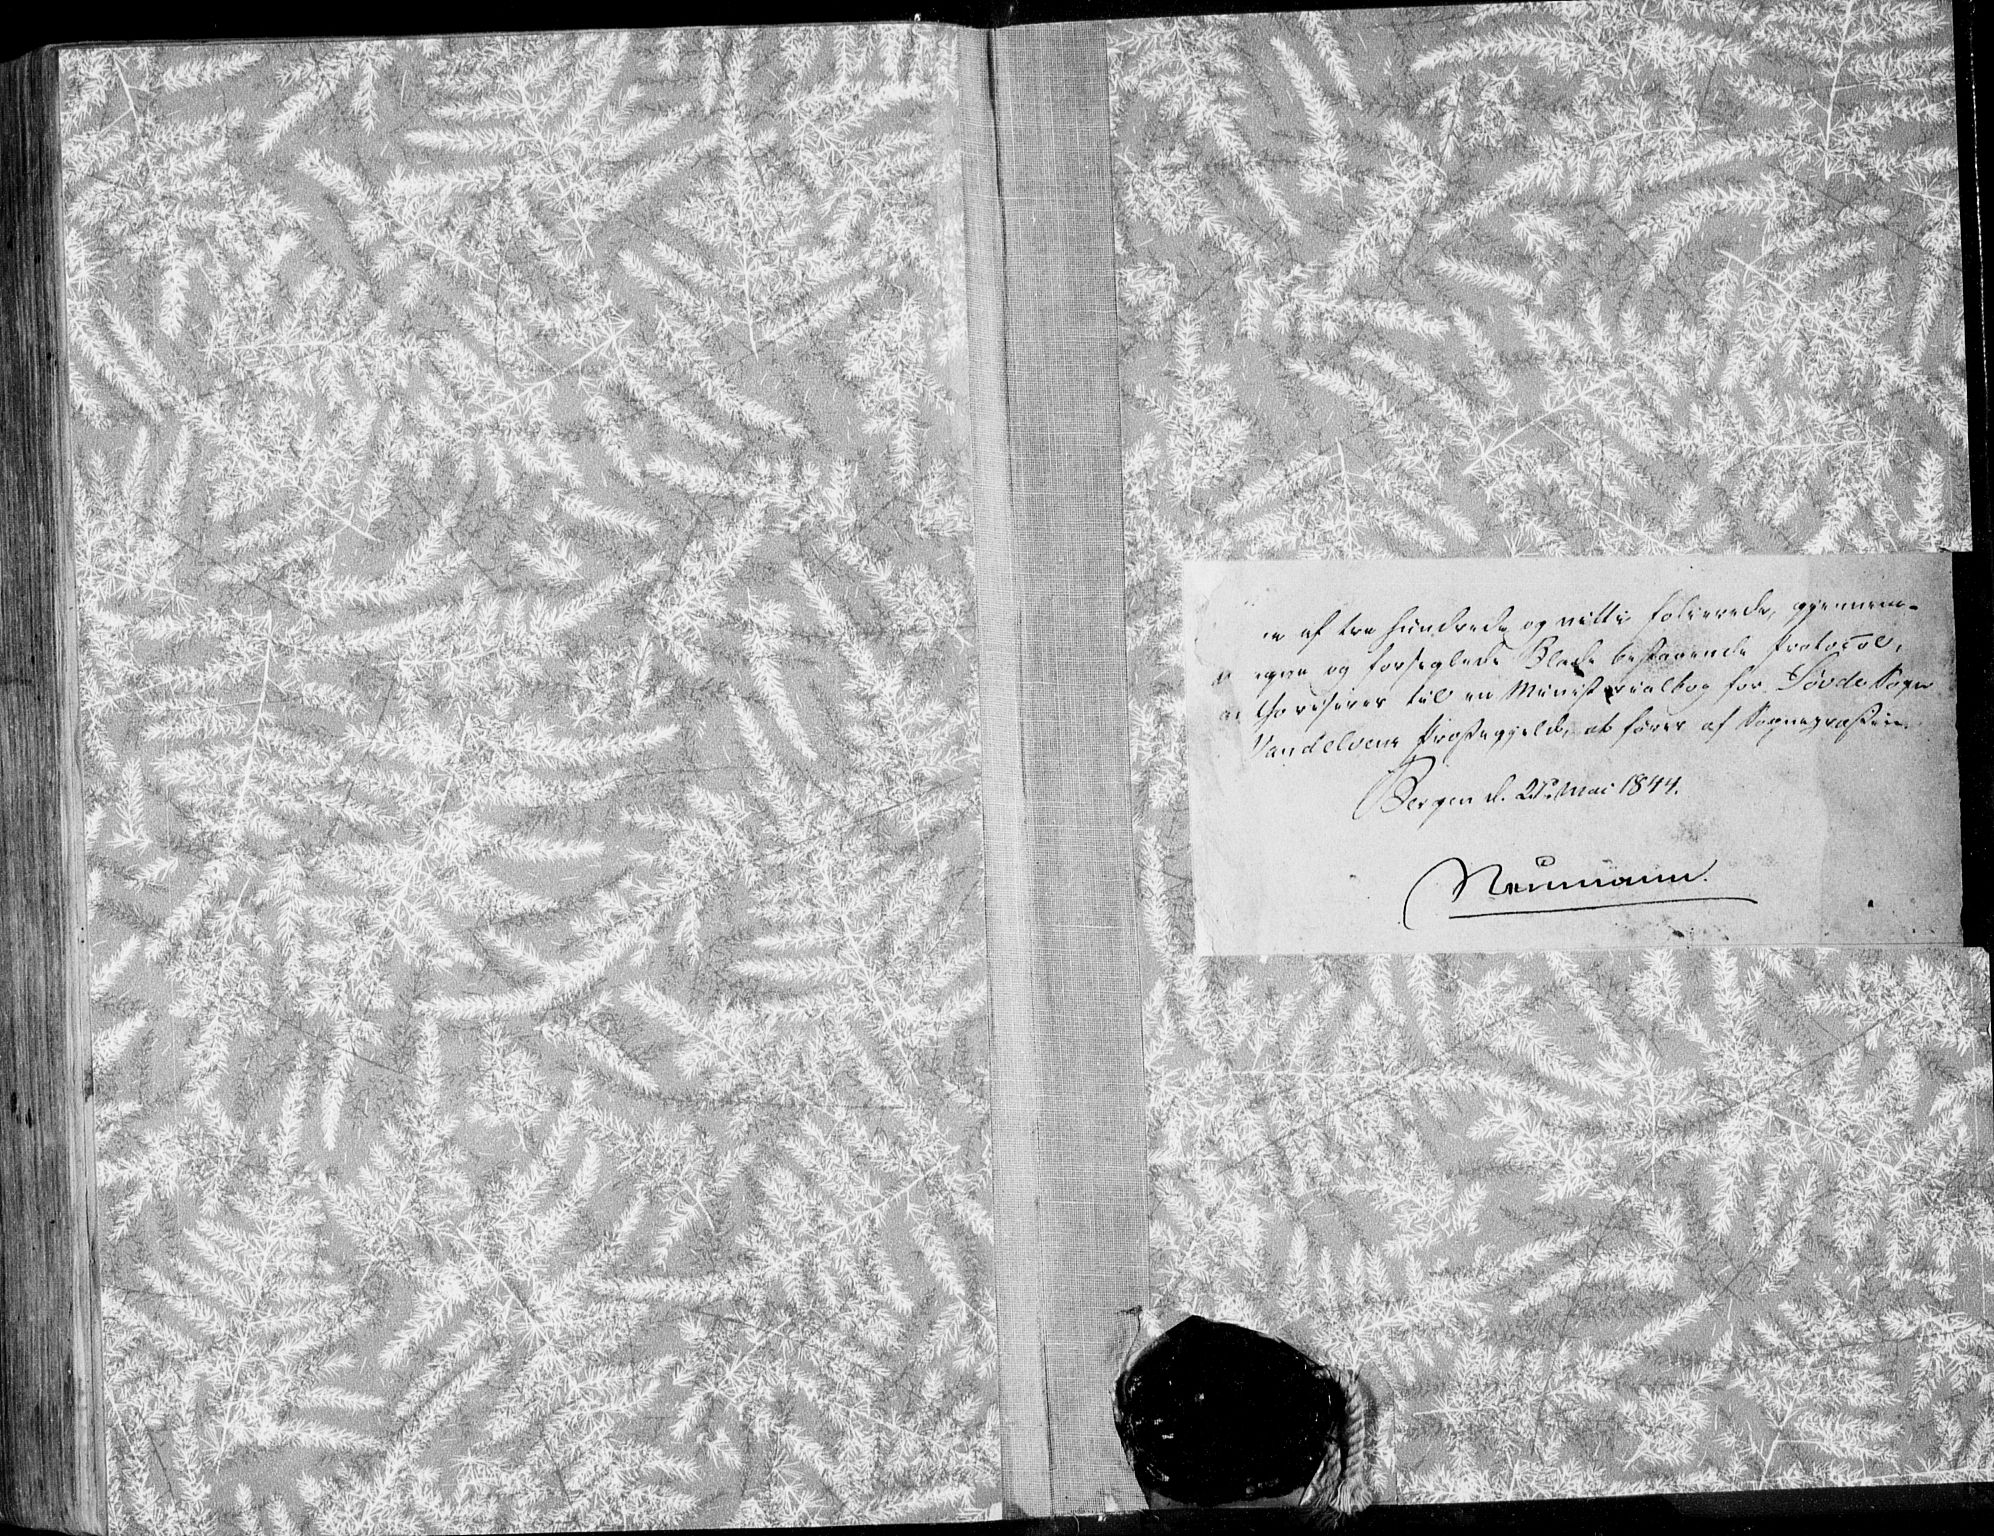 e af tre hundrede og nitti folierede, gjennem-
og forseglede Blade bestaaende Protocol,
authoriseres til en Ministerialbog for Søvde Sogn
Vandelvens Præstegjeld, at føres af Sognepræsten.
Bergen d. Mai 1844.
Neumann.